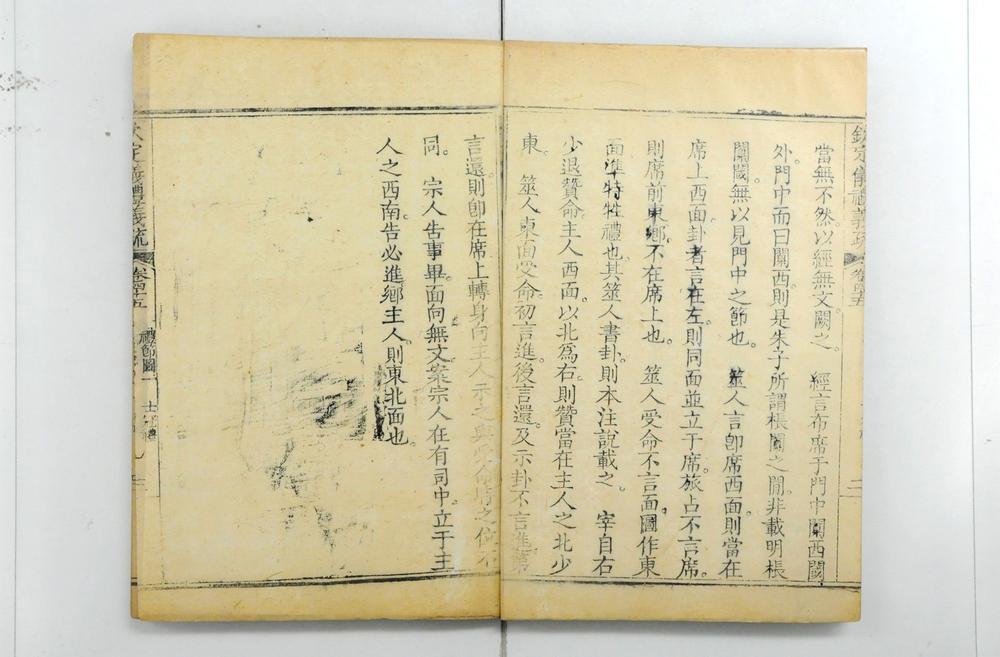 欽定儀禮義疏 卷四十五
當無不然。以經無文闕之。 經言布席于門中闑西閾
外。門中而曰闑西。則是朱子所謂棖闑之間。非載明棖
闑闑無以見門中之節也。 筮人言卽席西面。則當在
席上西面。卦者言在左。則同面並立于席。旅占不言席。
則席前東鄉。不在席上也。 筮人受命不言面。圖作東
面。準特牲禮也。其筮人書卦。則本注說載之。 宰自右
少退贊命。主人西面。以北爲右。則贊當在主人之北少
東。 筮人東面受命。初言進。後言還。及示卦不言進。
言還。則卽在席上轉身向主人示之。與受命時之位
同。 宗人告事畢。面向無文。案宗人在有司中。立于主
人之西南。告必進鄉主人。則東北面也。
定儀禮義疏 卷四十五 禮節圖一 士冠禮